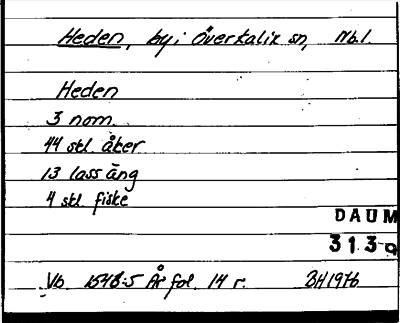 Heden, by i Överkalix sn, Nb.l.
Heden
3 nom.
44 skl. åker
13 lass äng
4 skl fiske
DAUM
313
Vb 1548:5 År fol. 14 r. BH1976